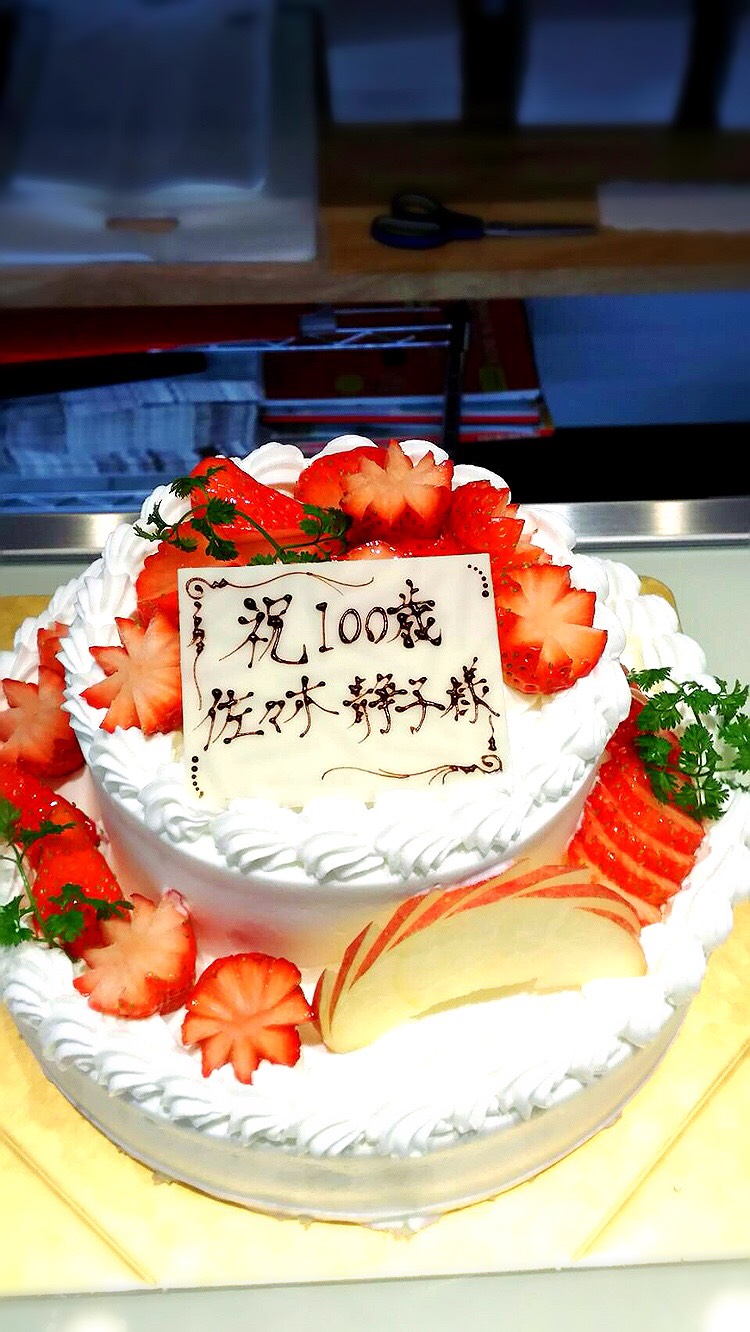 祝100歳
佐々木 静子様